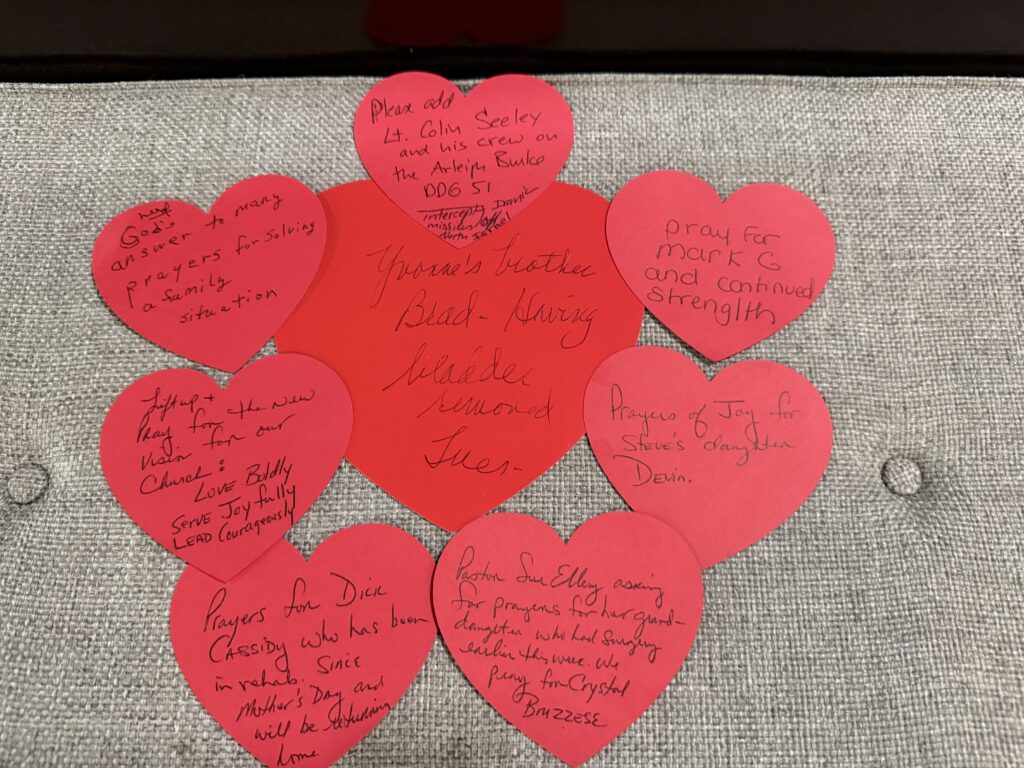 Please add
Lt. Colin Seeley
and his crew on
the Arleigh Burke
DDG 51
intercept
missiles off
North Israel
God's
answer to many
prayers for solving
a family
situation
Yvonne's brother
Brad - Having
bladder
removed
Tues-
pray for
mark G
and continued
strenglth
Lift up +
Pray for the new
Vision for our
Church:
LOVE Boldly
SERVE Joyfully
LEAD Courageously
Prayers of Joy for
Steve's daughter
Devin.
Prayers for Dick
CASSIDY who has been
in rehab. Since
Mother's Day and
will be returning
home
Pastor Sue Ellen asking
for prayers for her grand-
daughter who had surgery
earlier this week. We
pray for Crystal
BRUZZESE